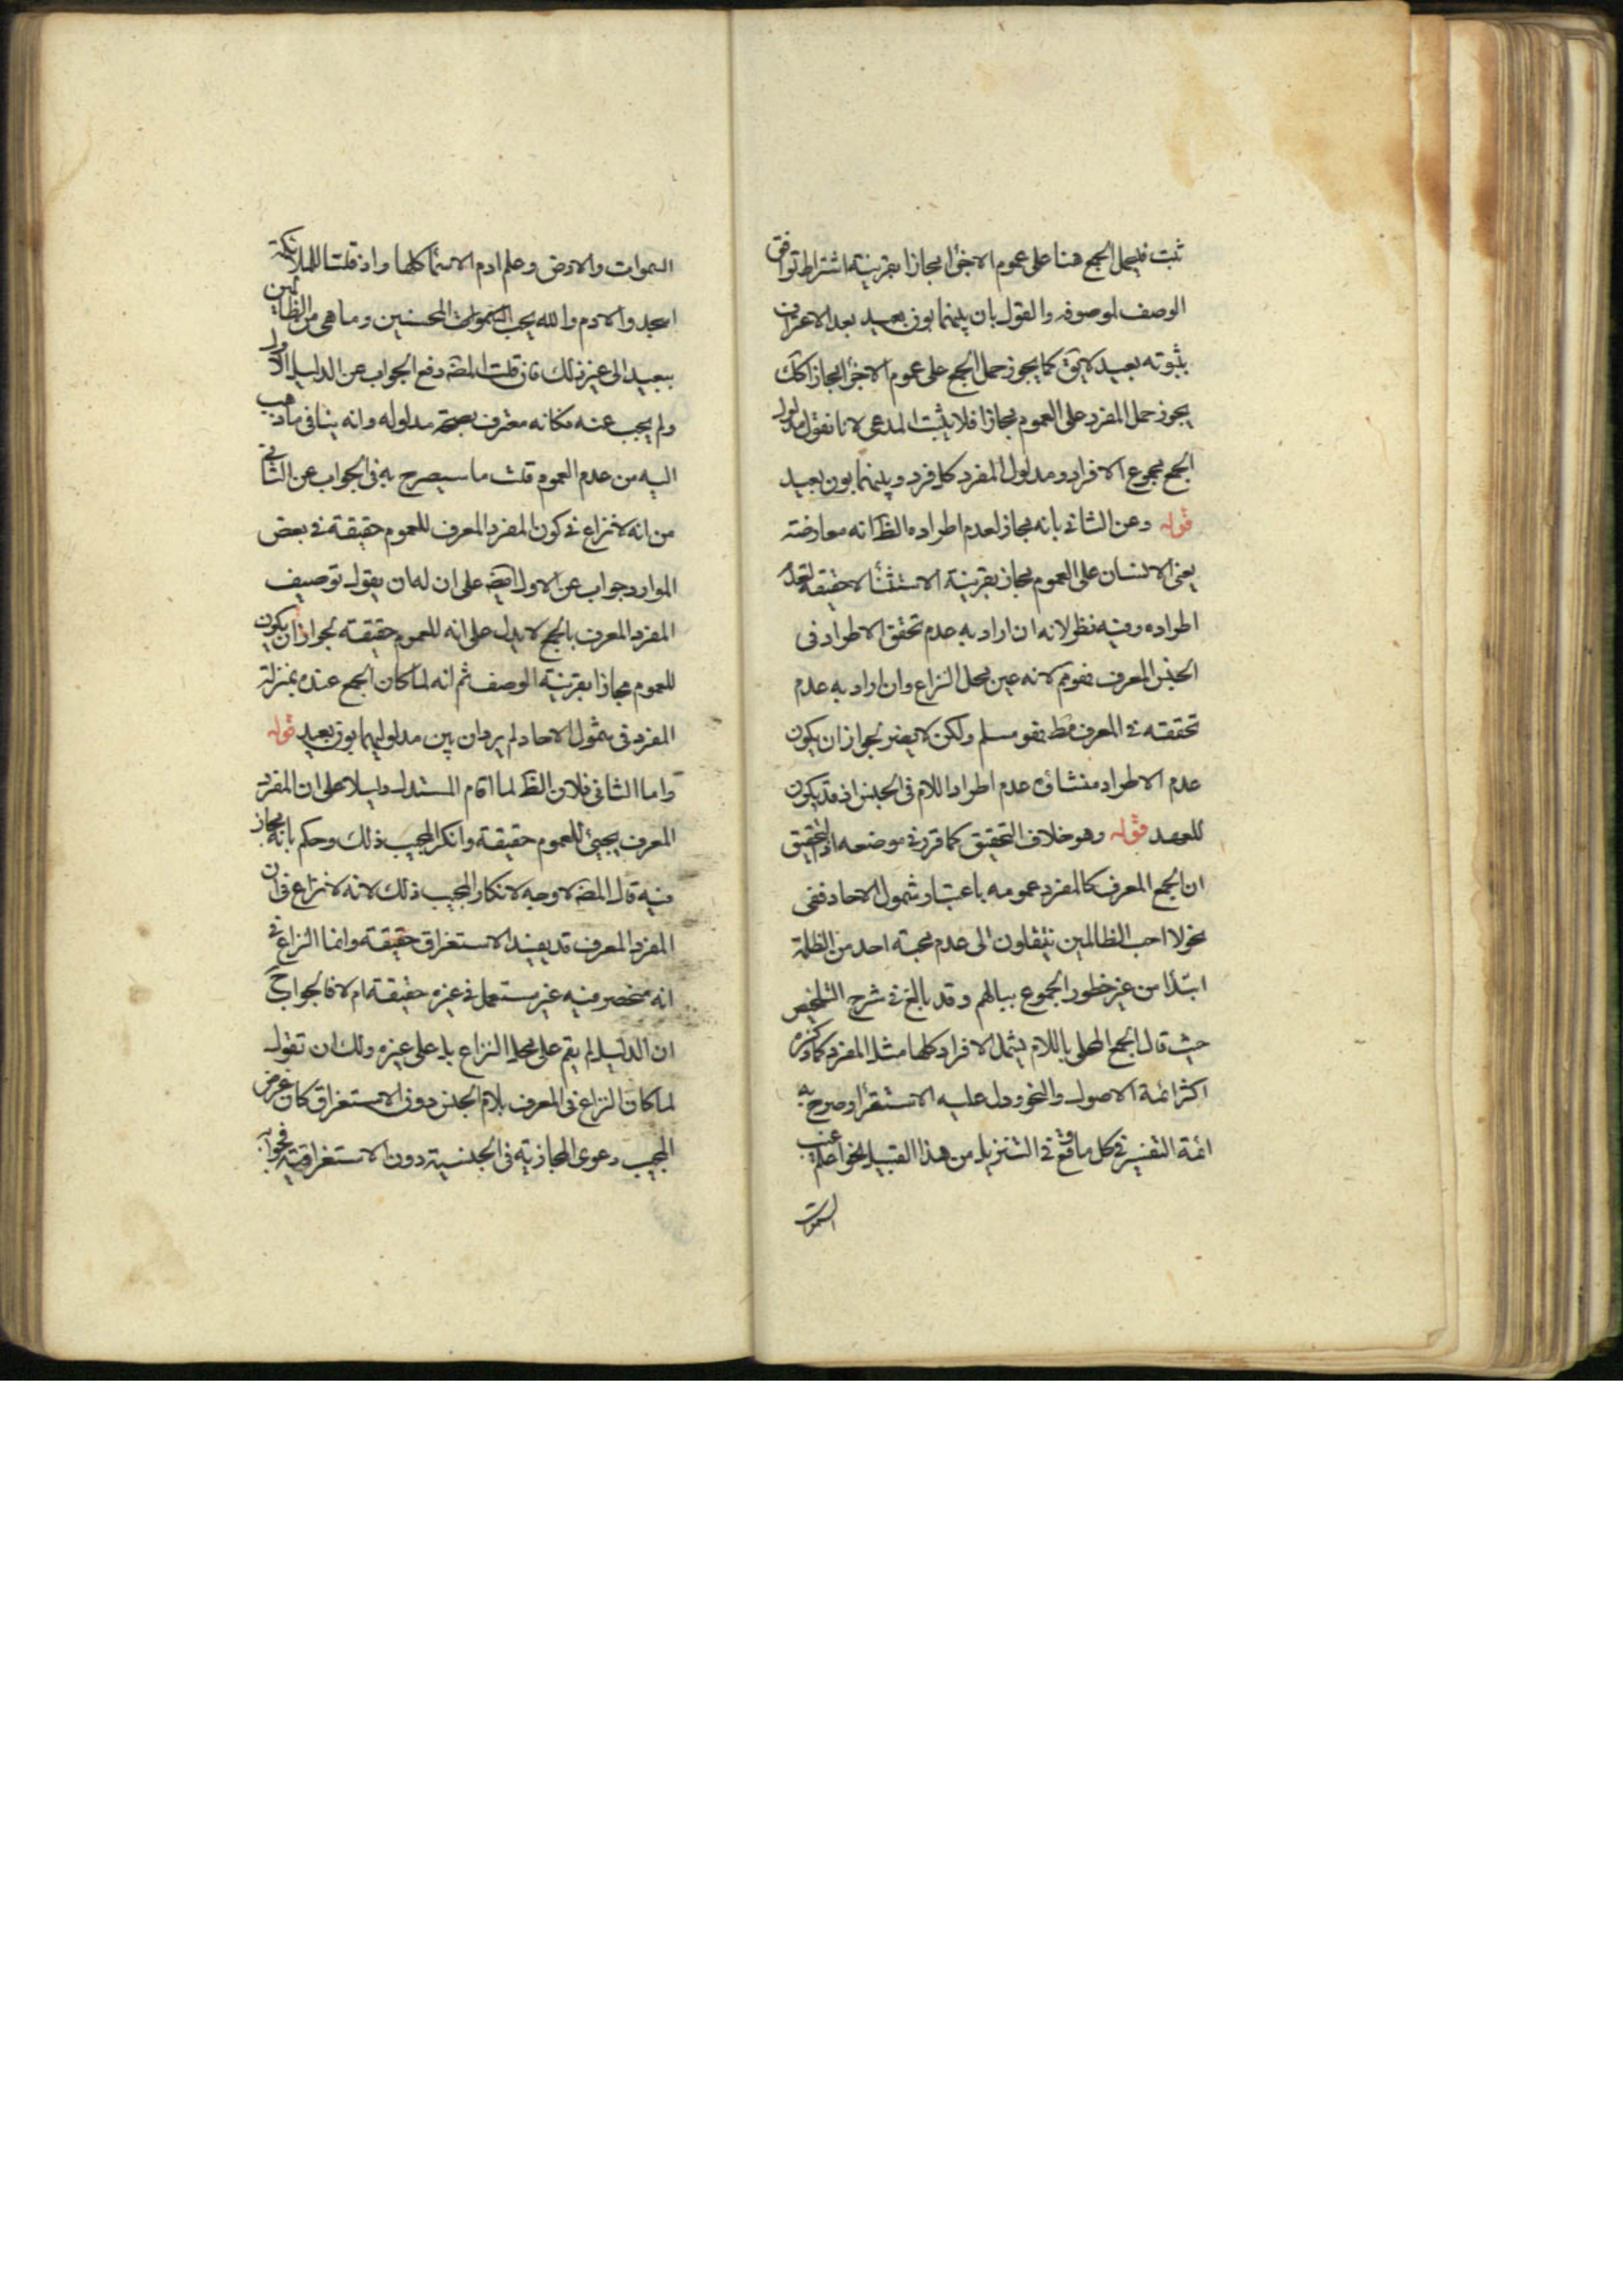 ثبت فيحمل الجمع هنا على عموم الاجزأ مجازا بقرينة اشتراط توافق
الوصف لموصوفه والقول بان بينهما بون بعيد بعد الاعتراف
بثبوته بعيد لا يق كما يجوز حمل الجمع على عموم الاجزأ مجازا كك
يجوز حمل المفرد على العموم مجازا فلا يثبت المدعى لانا نقول مدلول
الجمع مجموع الافراد ومدلول المفرد كل فرد وبينهما بون بعيد
قوله وعن الثانى بانه مجاز لعدم اطراده الظ انه معارضة
يعنى الانسان على العموم مجاز بقرينة الاستثنأ لا حقيقة لعدم
اطراده وفيه نظر لانه ان اراد به عدم تحقق الاطراد فى
الجنس المعرف فهو مم لانه عين محل النزاع وان اراد به عدم
تحققه فى المعرف مط فهو مسلم ولكن لا يضر لجواز ان يكون
عدم الاطراد منشاؤه عدم اطراد اللام فى الجنس اذ قد يكون
للعهد قوله وهو خلاف التحقيق كما قرر فى موضعه اذ التحقيق
ان الجمع المعرف كالمفرد عمومه باعتبار شمول الاحاد ففى
نحو لا احب الظالمين ينتقلون الى عدم محبة احد من الظلمة
ابتدأ من غير خطور الجموع ببالهم وقد بالغ فى شرح التلخيص
حيث قال الجمع المحلى باللام يشمل الافراد كلها مثل المفرد كما ذكره
اكثر ائمة الاصول والنحو ودل عليه الاستقرأ وصرح به
ائمة التفسير فى كل ما وقع فى التنزيل من هذا القبيل نحو اعلم غيب
السموات
السموات والارض وعلم ادم الاسمأ كلها واذ قلنا للملائكة
اسجدوا لادم والله يحب المحسنين وما هى من الظالمين
ببعيد الى غير ذلك فان قلت المصه دفع الجواب عن الدليل الاول
ولم يجب عنه فكانه معترف بصحة مدلوله وانه ينافى ما ذهب
اليه من عدم العموم قلت ما سيصرح به فى الجواب عن الثانى
من انه لا نزاع فى كون المفرد المعرف للعموم حقيقة فى بعض
الموارد جواب عن الاول ايضه على ان له ان يقول توصيف
المفرد المعرف بالجمع لا يدل على انه للعموم حقيقة لجواز ان يكون
للعموم مجازا بقرينة الوصف ثم انه لما كان الجمع عنده بمنزلة
المفرد فى شمول الاحاد لم يرد ان بين مدلوليهما بون بعيد قوله
واما الثانى فلان الظ لما اقام المستدل دليلا على ان المفرد
المعرف يجيئ للعموم حقيقة وانكر المجيب ذلك وحكم بانه مجاز
فيه قال المصه لا وجه لانكار المجيب ذلك لانه لا نزاع فى ان
المفرد المعرف قد يفيد الاستغراق حقيقة وانما النزاع فى
انه منحصر فيه غير مستعمل فى غيره حقيقة ام لا فالجواب ح
ان الدليل لم يقم على محل النزاع بل على غيره ولك ان تقول
لما كان النزاع فى المعرف بلام الجنس دون الاستغراق كان غرض
المجيب دعوى المجازية فى الجنسية دون الاستغراقية فجوابه